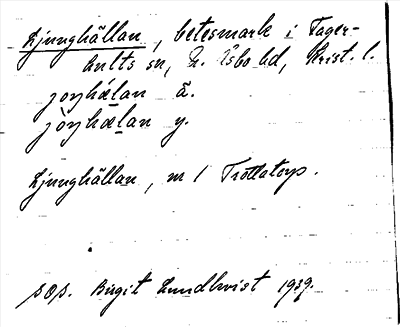 Ljunghällan, betesmark i Fager-
hults sn, N. Åsbo hd, Krist. l.
joŋhǽlan ä.
jòŋhælan y.
Ljunghällan, m 1 Trollatorp.
pop. Birgit Lundkvist 1939.